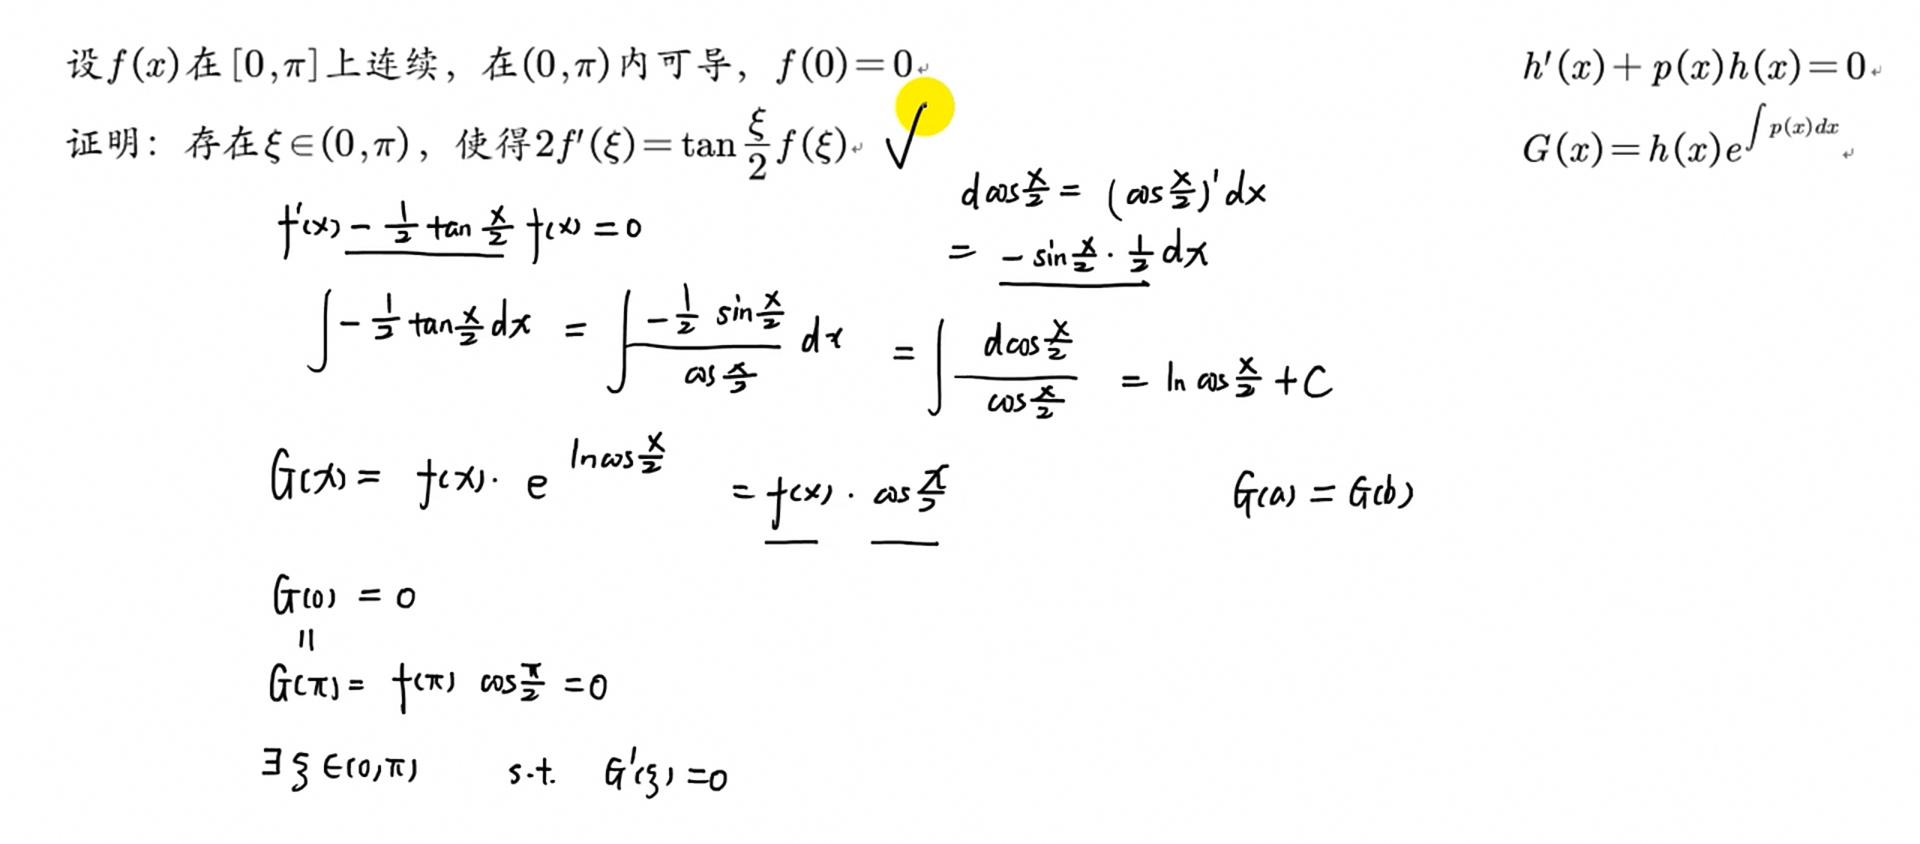 设f(x)在[0,π]上连续，在(0,π)内可导，f(0)=0
h'(x)+p(x)h(x)=0
证明：存在ξ∈(0,π)，使得2f'(ξ)=tan ξ/2 f(ξ) √
G(x)=h(x)e^∫p(x)dx
f'(x) - 1/2 tan x/2 f(x) = 0
d cos x/2 = (cos x/2)' dx
= - sin x/2 · 1/2 dx
∫ - 1/2 tan x/2 dx = ∫ (-1/2 sin x/2)/(cos x/2) dx = ∫ (d cos x/2)/(cos x/2) = ln cos x/2 + C
G(x) = f(x) · e^(ln cos x/2) = f(x) · cos x/2
G(a) = G(b)
G(0) = 0
=
G(π) = f(π) cos π/2 = 0
∃ ξ ∈(0,π) s.t. G'(ξ) = 0